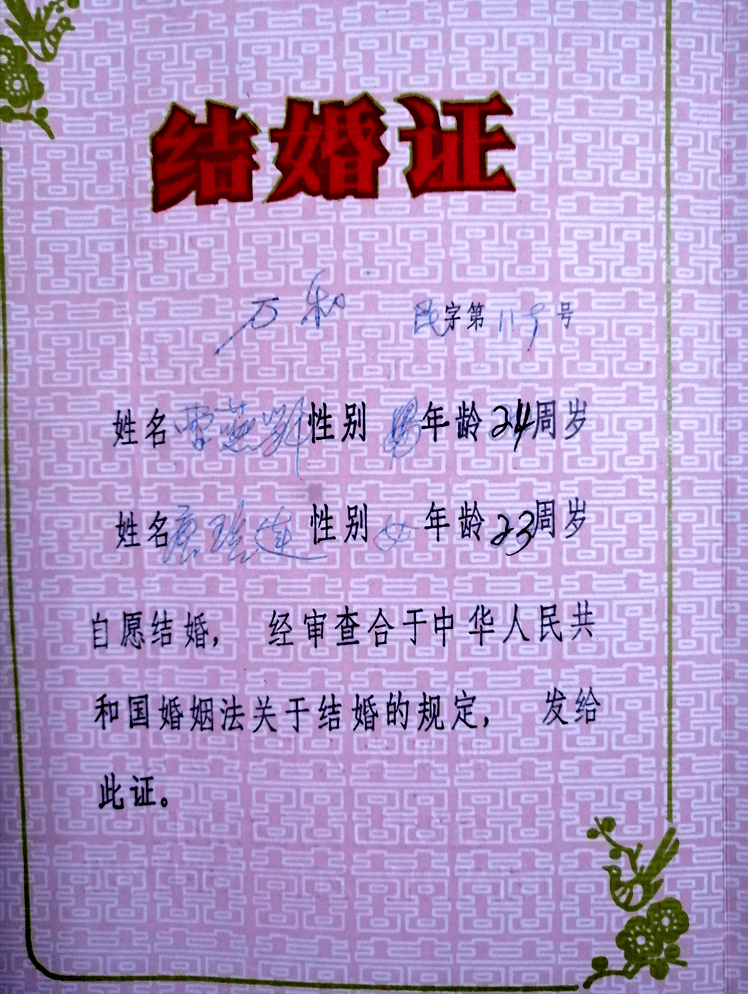 结婚证
万和 民字第119号
姓名曹燕 性别男年龄24周岁
姓名唐 莲性别女年龄23周岁
自愿结婚， 经审查合于中华人民共
和国婚姻法关于结婚的规定， 发给
此证。